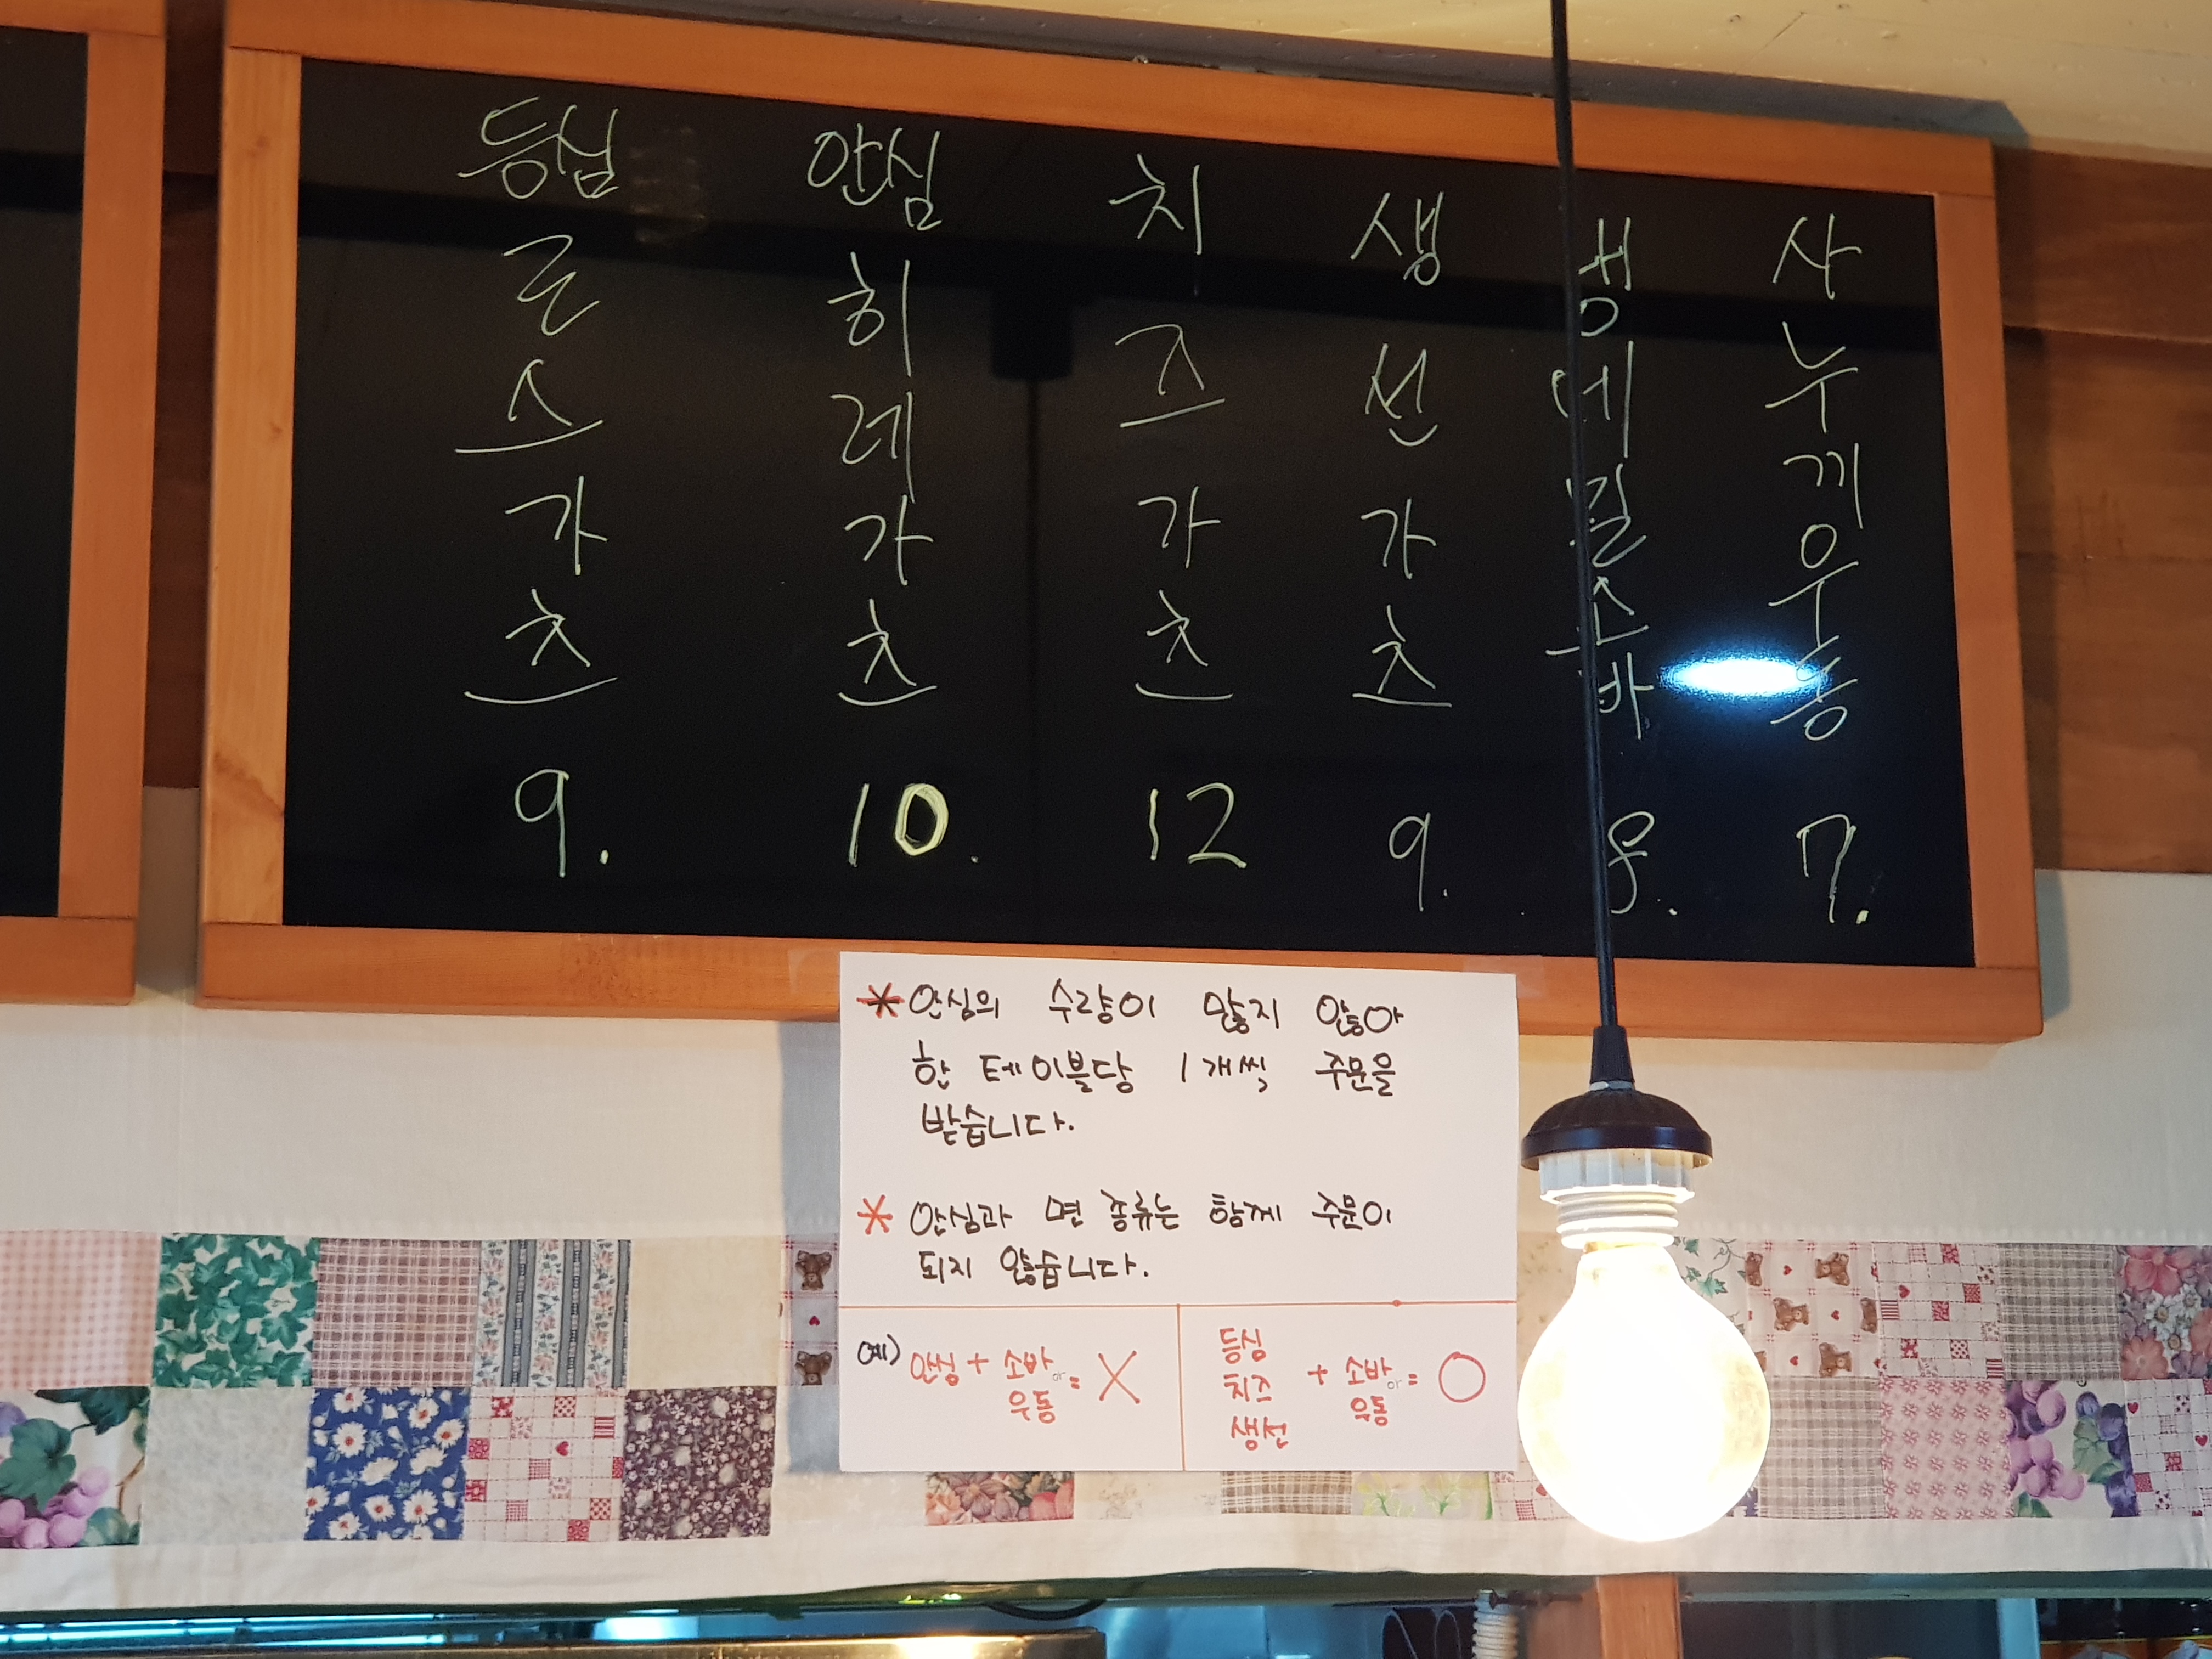 등심로스가츠 9.
안심히레가츠 10.
치즈가츠 12
생선가츠 9.
냉메밀소바 8.
사누끼우동 7.
*안심의 수량이 많지 않아
한 테이블당 1개씩 주문을
받습니다.
* 안심과 면 종류는 함께 주문이
되지 않습니다.
예) 안심 + 소바 or 우동 = X
등심 치즈 생선 + 소바 or 우동 = O